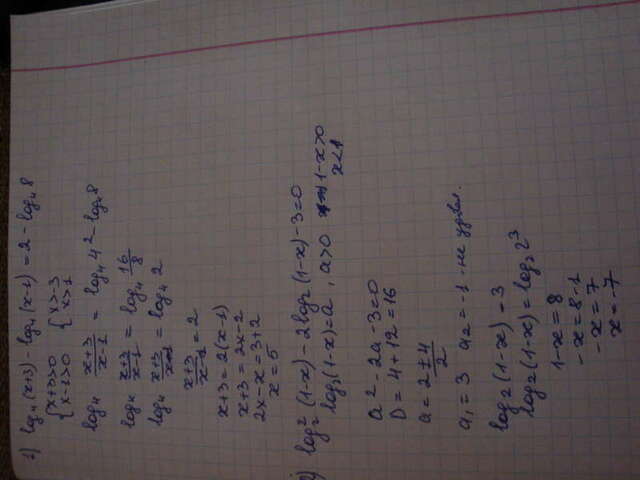 1) log₄(x+3) - log₄(x-1) = 2 - log₄8
{x+3>0 {x>-3
{x-1>0 {x>1
log₄ (x+3)/(x-1) = log₄4² - log₄8
log₄ (x+3)/(x-1) = log₄ 16/8
log₄ (x+3)/(x-1) = log₄ 2
(x+3)/(x-1) = 2
x+3 = 2(x-1)
x+3 = 2x-2
2x-x = 3+2
x = 5
2) log₂²(1-x) - 2log₂(1-x) - 3 = 0
log₂(1-x) = a, a>0 1-x>0
x<1
a² - 2a - 3 = 0
D = 4+12 = 16
a = (2±4)/2
a₁ = 3 a₂ = -1 - не удовл.
log₂(1-x) = 3
log₂(1-x) = log₂ 2³
1-x = 8
-x = 8-1
-x = 7
x = -7